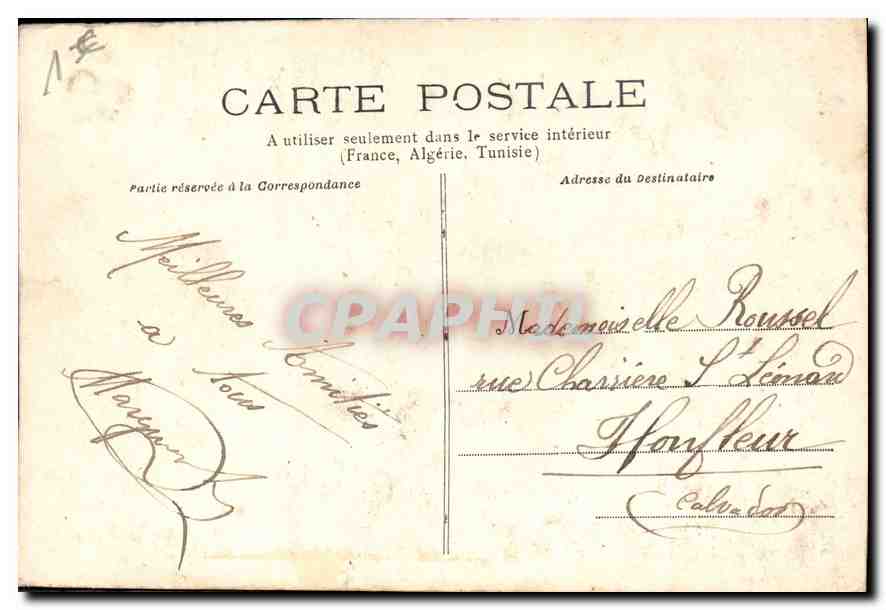 1€
CARTE POSTALE
A utiliser seulement dans le service intérieur
(France, Algérie, Tunisie)
Partie réservée à la Correspondance
Adresse du Destinataire
Meilleures Amitiés
a tous
CPAPHIL
Mademoiselle Roussel
rue Charrière St Léonard
Honfleur
Calvados